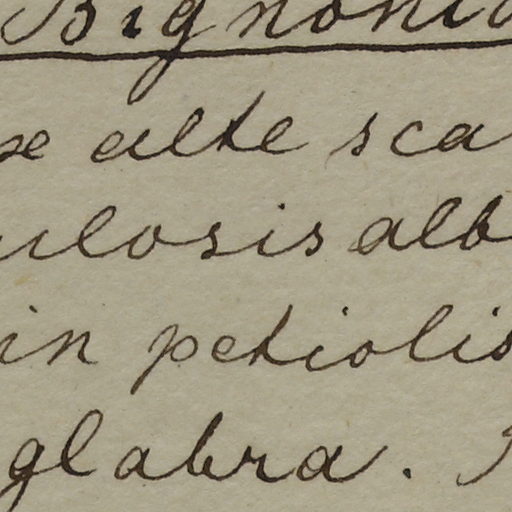 Bignonia
se alte sca
ulosis alb
in petiolis
glabra.